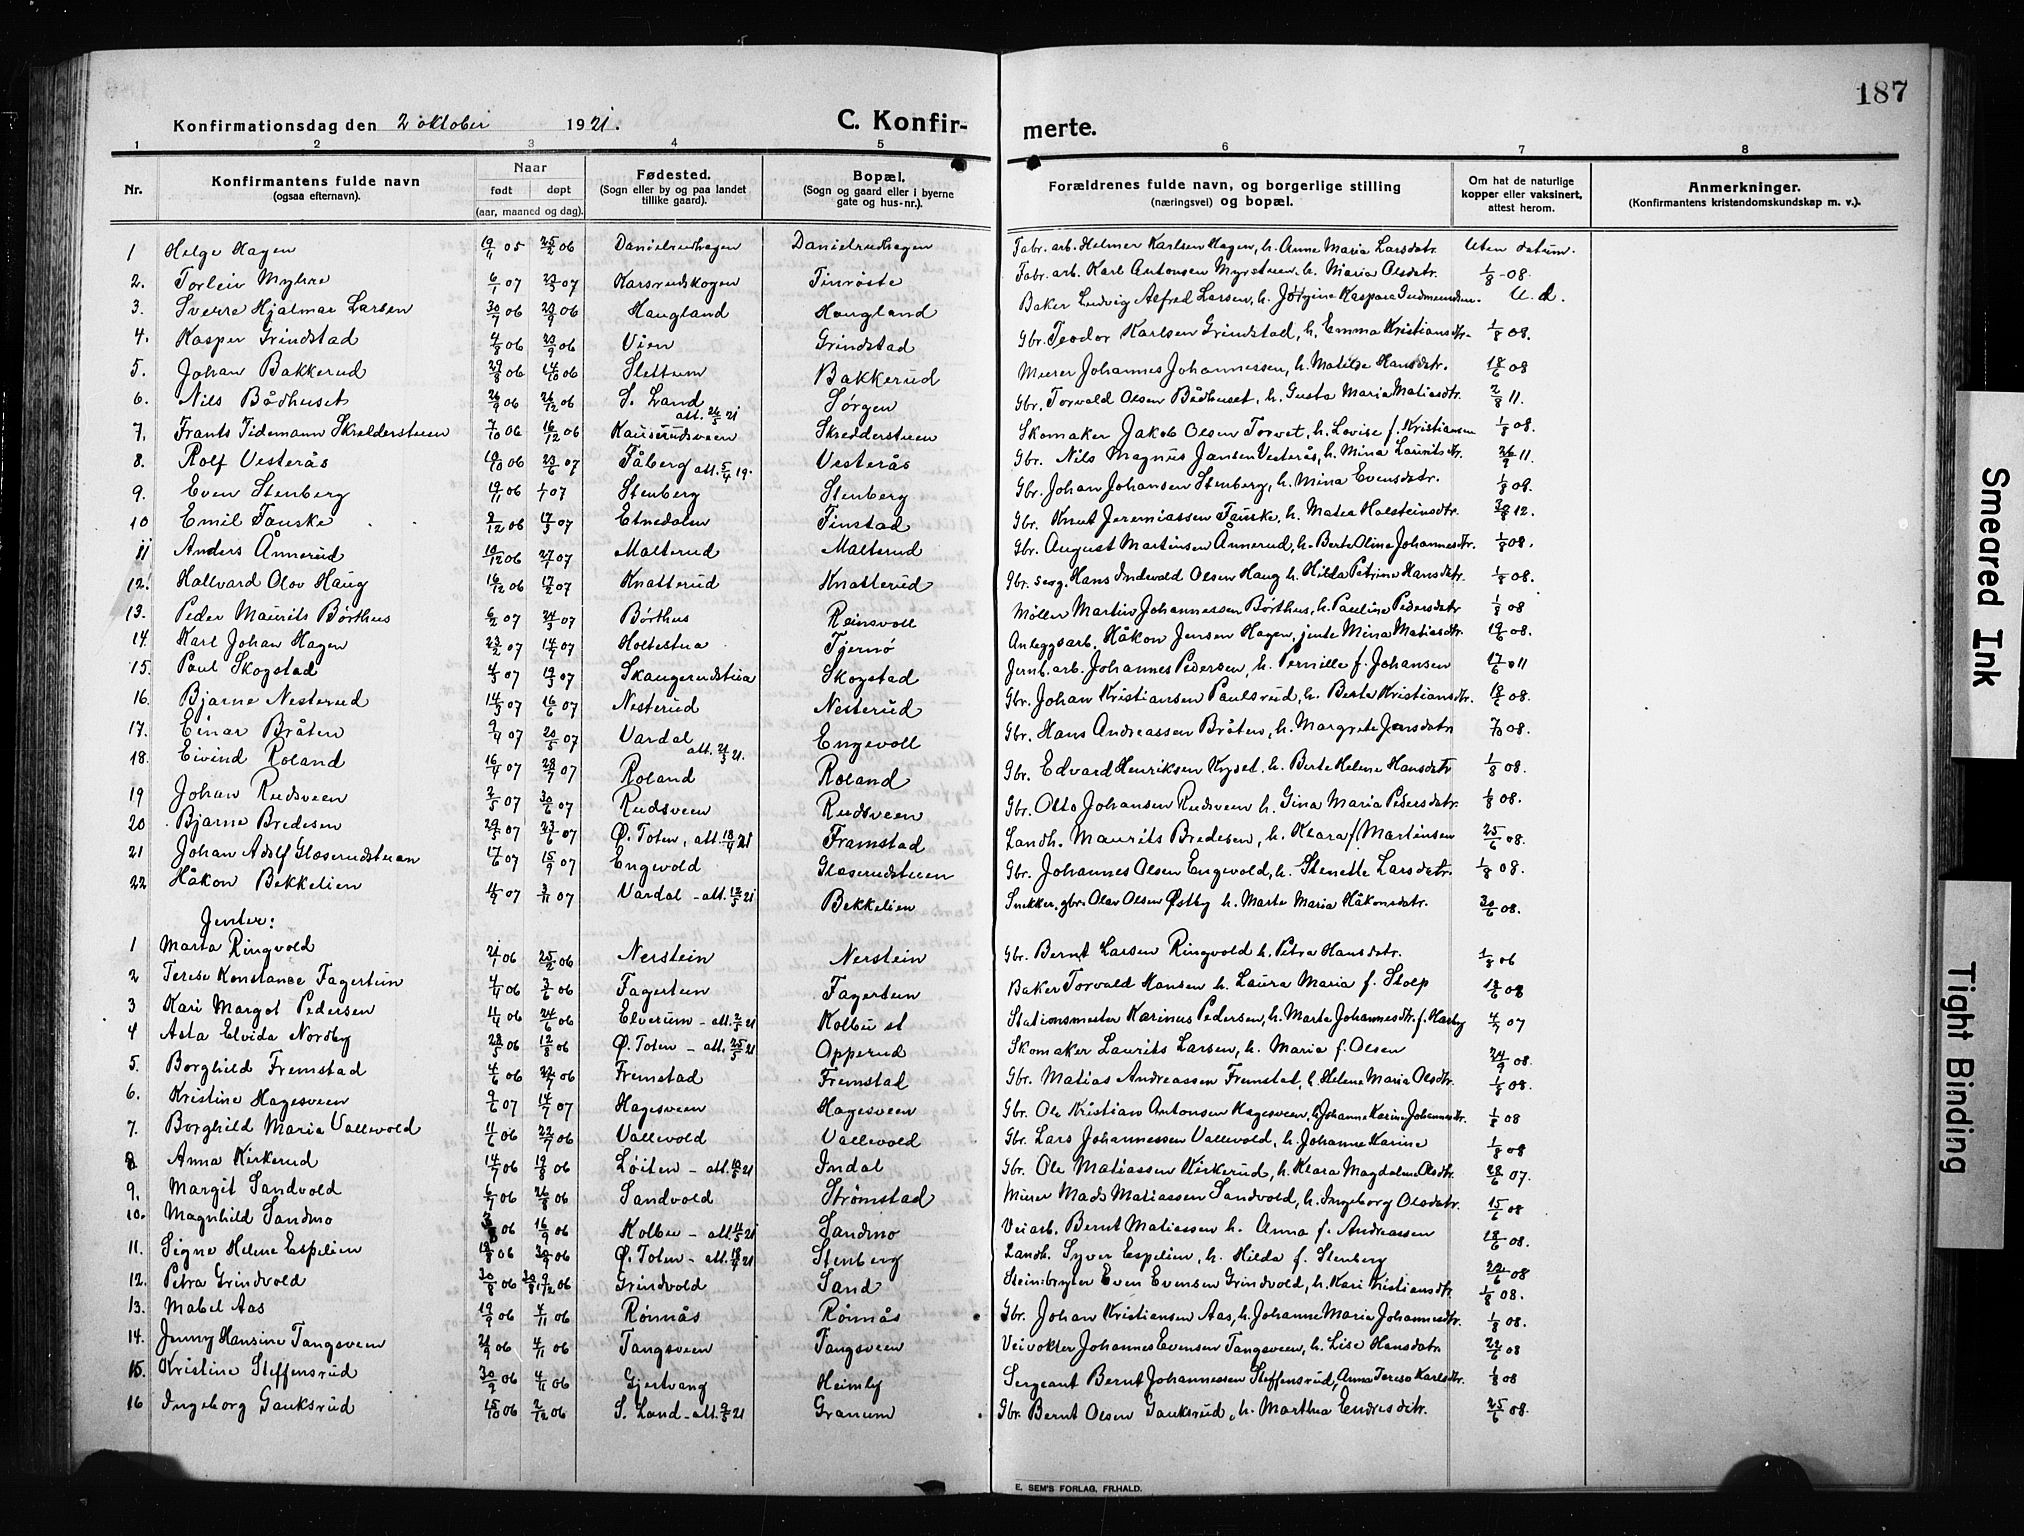 187
Konfirmationsdag den 2 oktober 1921. C. Konfir- merte.
1 2 3 4 5 6 7 8
Nr. Konfirmantens fulde navn (ogsaa efternavn). Naar født døpt (aar, maaned og dag). Fødested. (Sogn eller by og paa landet tillike gaard). Bopæl. (Sogn og gaard eller i byerne gate og hus-nr.). Forældrenes fulde navn, og borgerlige stilling (næringsvei) og bopæl. Om hat de naturlige kopper eller vaksinert, attest herom. Anmerkninger. (Konfirmantens kristendomskundskap m. v.).
1 Helge Hagen 19/11 05 25/2 06 Danielrudhagen Danielrudhagen Fabr. arb. Helmer Karlsen Hagen, h. Anne Maria Larsdatr. Uten datum.
2. Torleiv Myhre 6/1 07 23/3 07 Karsrudskogen Finröste Fabr. arb. Karl Antonsen Myrstuen h. Maria Olsdatr. 1/8-08.
3. Sverre Hjalmar Larsen 30/7 06 23/9 06 Haugland Haugland Baker Ludvig Alfred Larsen, h. Kaspara U. d.
4. Kasper Grindstad 4/8 06 23/9 06 Vien Grindstad Gbr. Teodor Karlsen Grindstad, h. Emma Kristiansdtr. 1/8 08.
5. Johan Bakkerud 29/8 06 14/10 06 Slettum Bakkerud Murer Johannes Johannessen, h. Matilde Hansdatr. 18/6 08
6. Nils Bådhuset 26/9 06 26/12 06 S. Land att. 24/5 21 Sørgen Gbr. Torvald Olsen Bådhuset, h. Gusta Maria Matiasdtr. 2/8 11.
7. Frants Tidemann Skrædderstuen 7/10 06 16/12 06 Kauserudsveen Skredderstuen Skomaker Jakob Olsen Torvet, h. Lovise f. Kristiansen 1/8 08.
8. Rolf Vesterås 19/10 06 23/6 07 Fåberg att. 5/4 19. Vesterås Gbr. Nils Magnus Jansen Vesterås, h. Mina Lauritsdtr. 26/9 11.
9. Even Stenberg 19/11 06 1/1 07 Stenberg Stenberg Gbr. Johan Johansen Stenberg, h. Mina Evensdatr. 1/8 08.
10 Emil Fauske 9/12 06 17/3 07 Etnedalen Finstad Gbr. Knut Jeremiassen Fauske, h. Matea Holsteinsdtr. 30/8 12.
11 Anders Ånnerud 19/12 06 27/1 07 Malterud Malterud Gbr. August Martinsen Ånnerud, h. Berte Oline Johannesdtr. 1/8 08.
12. Hallvard Olov Haug 16/12 06 17/2 07 Knatterud Knatterud Gbr. serg. Hans Indevald Olsen Haug h. Hilda Petrine Hansdtr. 1/8 08.
13. Peder Maurits Børthus 6/2 07 24/3 07 Børthus Reinsvoll Møller Martin Johannessen Børthus, h. Pauline Pedersdatr 1/8 08
14. Karl Johan Hagen 23/2 07 14/7 07 Holtestua Tjernø Anleggsarb. Håkon Jensen Hagen, jente Mina Matiasdtr. 19/6 08.
15. Paul Skogstad 4/3 07 19/3 07 Skaugerudstua Skogstad Jernb. arb. Johannes Pedersen, h. Pernille f. Johansen 17/6 011
16. Bjarne Nesterud 14/3 07 16/6 07 Nesterud Nesterud Gbr. Johan Kristiansen Paulsrud, h. Berte Kristiansdtr. 18/6 08.
17. Einar Bråten 9/4 07 20/5 07 Vardal att. 21/3 21. Engevoll Gbr. Hans Andreassen Bråten, h. Margrete Jensdatr 7/10 08.
18. Eivind Roland 16/4 07 28/7 07 Roland Roland Gbr. Edvard Henriksen Kyset, h. Berte Helene Hansdatr 1/8 08.
19 Johan Rudsveen 2/5 07 30/6 07 Rudsveen Rudsveen Gbr. Otto Johansen Rudsveen h. Gina Maria Pedersdatr. 1/8 08.
20 Bjarne Bredesen 29/5 07 23/6 07 Ø. Toten, att. 18/4 21 Framstad Landh. Maurits Bredesen, h. Klara f. Martinsen 25/6 08.
21 Johan Adolf Glæserudstuen 17/6 07 15/9 07 Engevold Glæserudstuen Gbr. Johannes Olsen Engevold, h. Stenette Larsdatr. 1/8 08.
22 Håkon Bekkelien 4/9 07 3/11 07 Vardal - att. 12/5 21 Bekkelien Snekker. gbr. Olav Olsen Østby h. Marte Maria Håkonsdatr. 30/6 08.
Jenter:
1 Marta Ringvold 21/1 06 25/2 06 Nerstein Nerstein Gbr. Bernt Larsen Ringvold h. Petra Hansdatr. 1/8 06
2 Terese Konstance Fagertun 4/4 06 3/6 06 Fagertun Fagertun Baker Torvald Hansen h. Laura Maria f. Stolp 18/6 08
3 Kari Margot Pedersen 11/4 06 24/6 06 Elverum - att. 2/5 21 Kolbu st Stationsmester Karinus Pedersen, h. Marta Johannesdtr. f. Harby 4/7 07
4 Asta Elvida Nordby 28/5 06 12/8 06 Ø. Toten - att. 25/5 21 Opperud Skomaker Laurits Larsen, h. Maria f. Olsen 24/9 08.
5. Borghild Fremstad 4/6 06 22/7 06 Fremstad Fremstad Gbr. Matias Andreassen Fremstad, h. Helene Maria Olsdtr. 1/8 08.
6. Kristine Hagesveen 9/6 07 14/7 07 Hagesveen Hagesveen Gbr. Ole Kristian Antonsen Hagesveen, h. Johanne Karine Johannesdtr. 1/8 08
7. Borghild Maria Vallevold 11/6 06 22/7 06 Vallevold Vallevold Gbr. Lars Johannessen Vallevold, h. Johanne Karine 1/8 08
8 Anna Kirkerud 14/7 06 19/8 06 Løiten - att. 10/5 21 Indal Gbr. Ole Matiassen Kirkerud, h. Klara Magdalene Olsdtr. 28/6 07.
9. Margit Sandvold 6/7 06 26/8 06 Sandvold Strømstad Murer Mads Matiassen Sandvold, h. Ingeborg Olsdatr. 15/6 08
10. Magnhild Sandmo 3/8 06 16/9 06 Kolbu - att. 11/5 21 Sandmo Veiarb. Bernt Matiassen h. Anna f. Andreassen 18/6 08.
11. Signe Helene Espelien 19/8 06 30/9 06 Ø. Toten - att. 18/4 21 Stenberg Landh. Syver Espelien, h. Hilda f. Stenberg 22/6 08
12. Petra Grindvold 30/8 06 30/8, 9/12 06 Grindvold Sand Steinbryter Even Evensen Grindvold, h. Kari Kristiansdtr. 1/8 08.
13. Mabel Aas 19/9 06 4/11 06 Rønnås Rønnås Gbr. Johan Kristiansen Aas, h. Johanne Maria Johannesdtr. 1/8 08.
14. Jenny Hansine Tangsveen 21/9 06 4/11 06 Tangsveen Tangsveen Veivokter Johannes Evensen Tangsveen, h. Lise Hansdatr 22/6 08
15. Kristine Steffensrud 30/9 06 4/11 06 Gjestvang Heimly Sergeant Bernt Johannessen Steffensrud, Anna Terese Karlsdtr. 1/8 08
16 Ingeborg Gauksrud 15/10 06 2/12 06 S. Land - att. 9/5 21 Granum Gbr. Bernt Olsen Gauksrud, h. Marthea Endresdatr. 25/6 08.
E. SEM'S FORLAG, FR.HALD.
Smeared Ink
Tight Binding